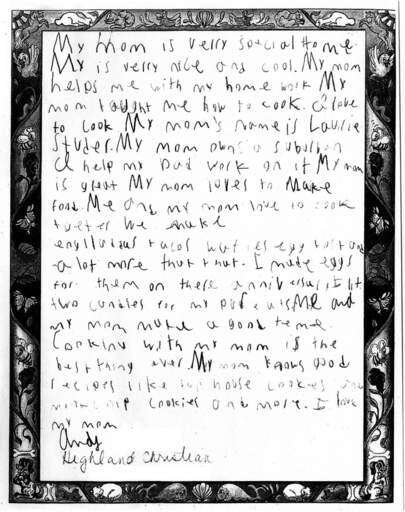 My Mom is verry special to me.
My is verry nice and cool. My mom
helps me with my home work My
mom taught me how to cook. I love
to cook My mom's name is Laurie
Studer. My mom owns a suburban
I help my Dad work on it My mom
is great My mom loves to Make
food. Me and my mom love to cook
we make
tacos egg
a lot more than that. I made eggs
for them on there anniversary I lit
two candles for my Me and
my mom make a good teme.
Cooking with my mom is the
best thing ever. My mom knows good
recipes like house cookies
cookies and more. I love
my mom
Andy
Highland Christian